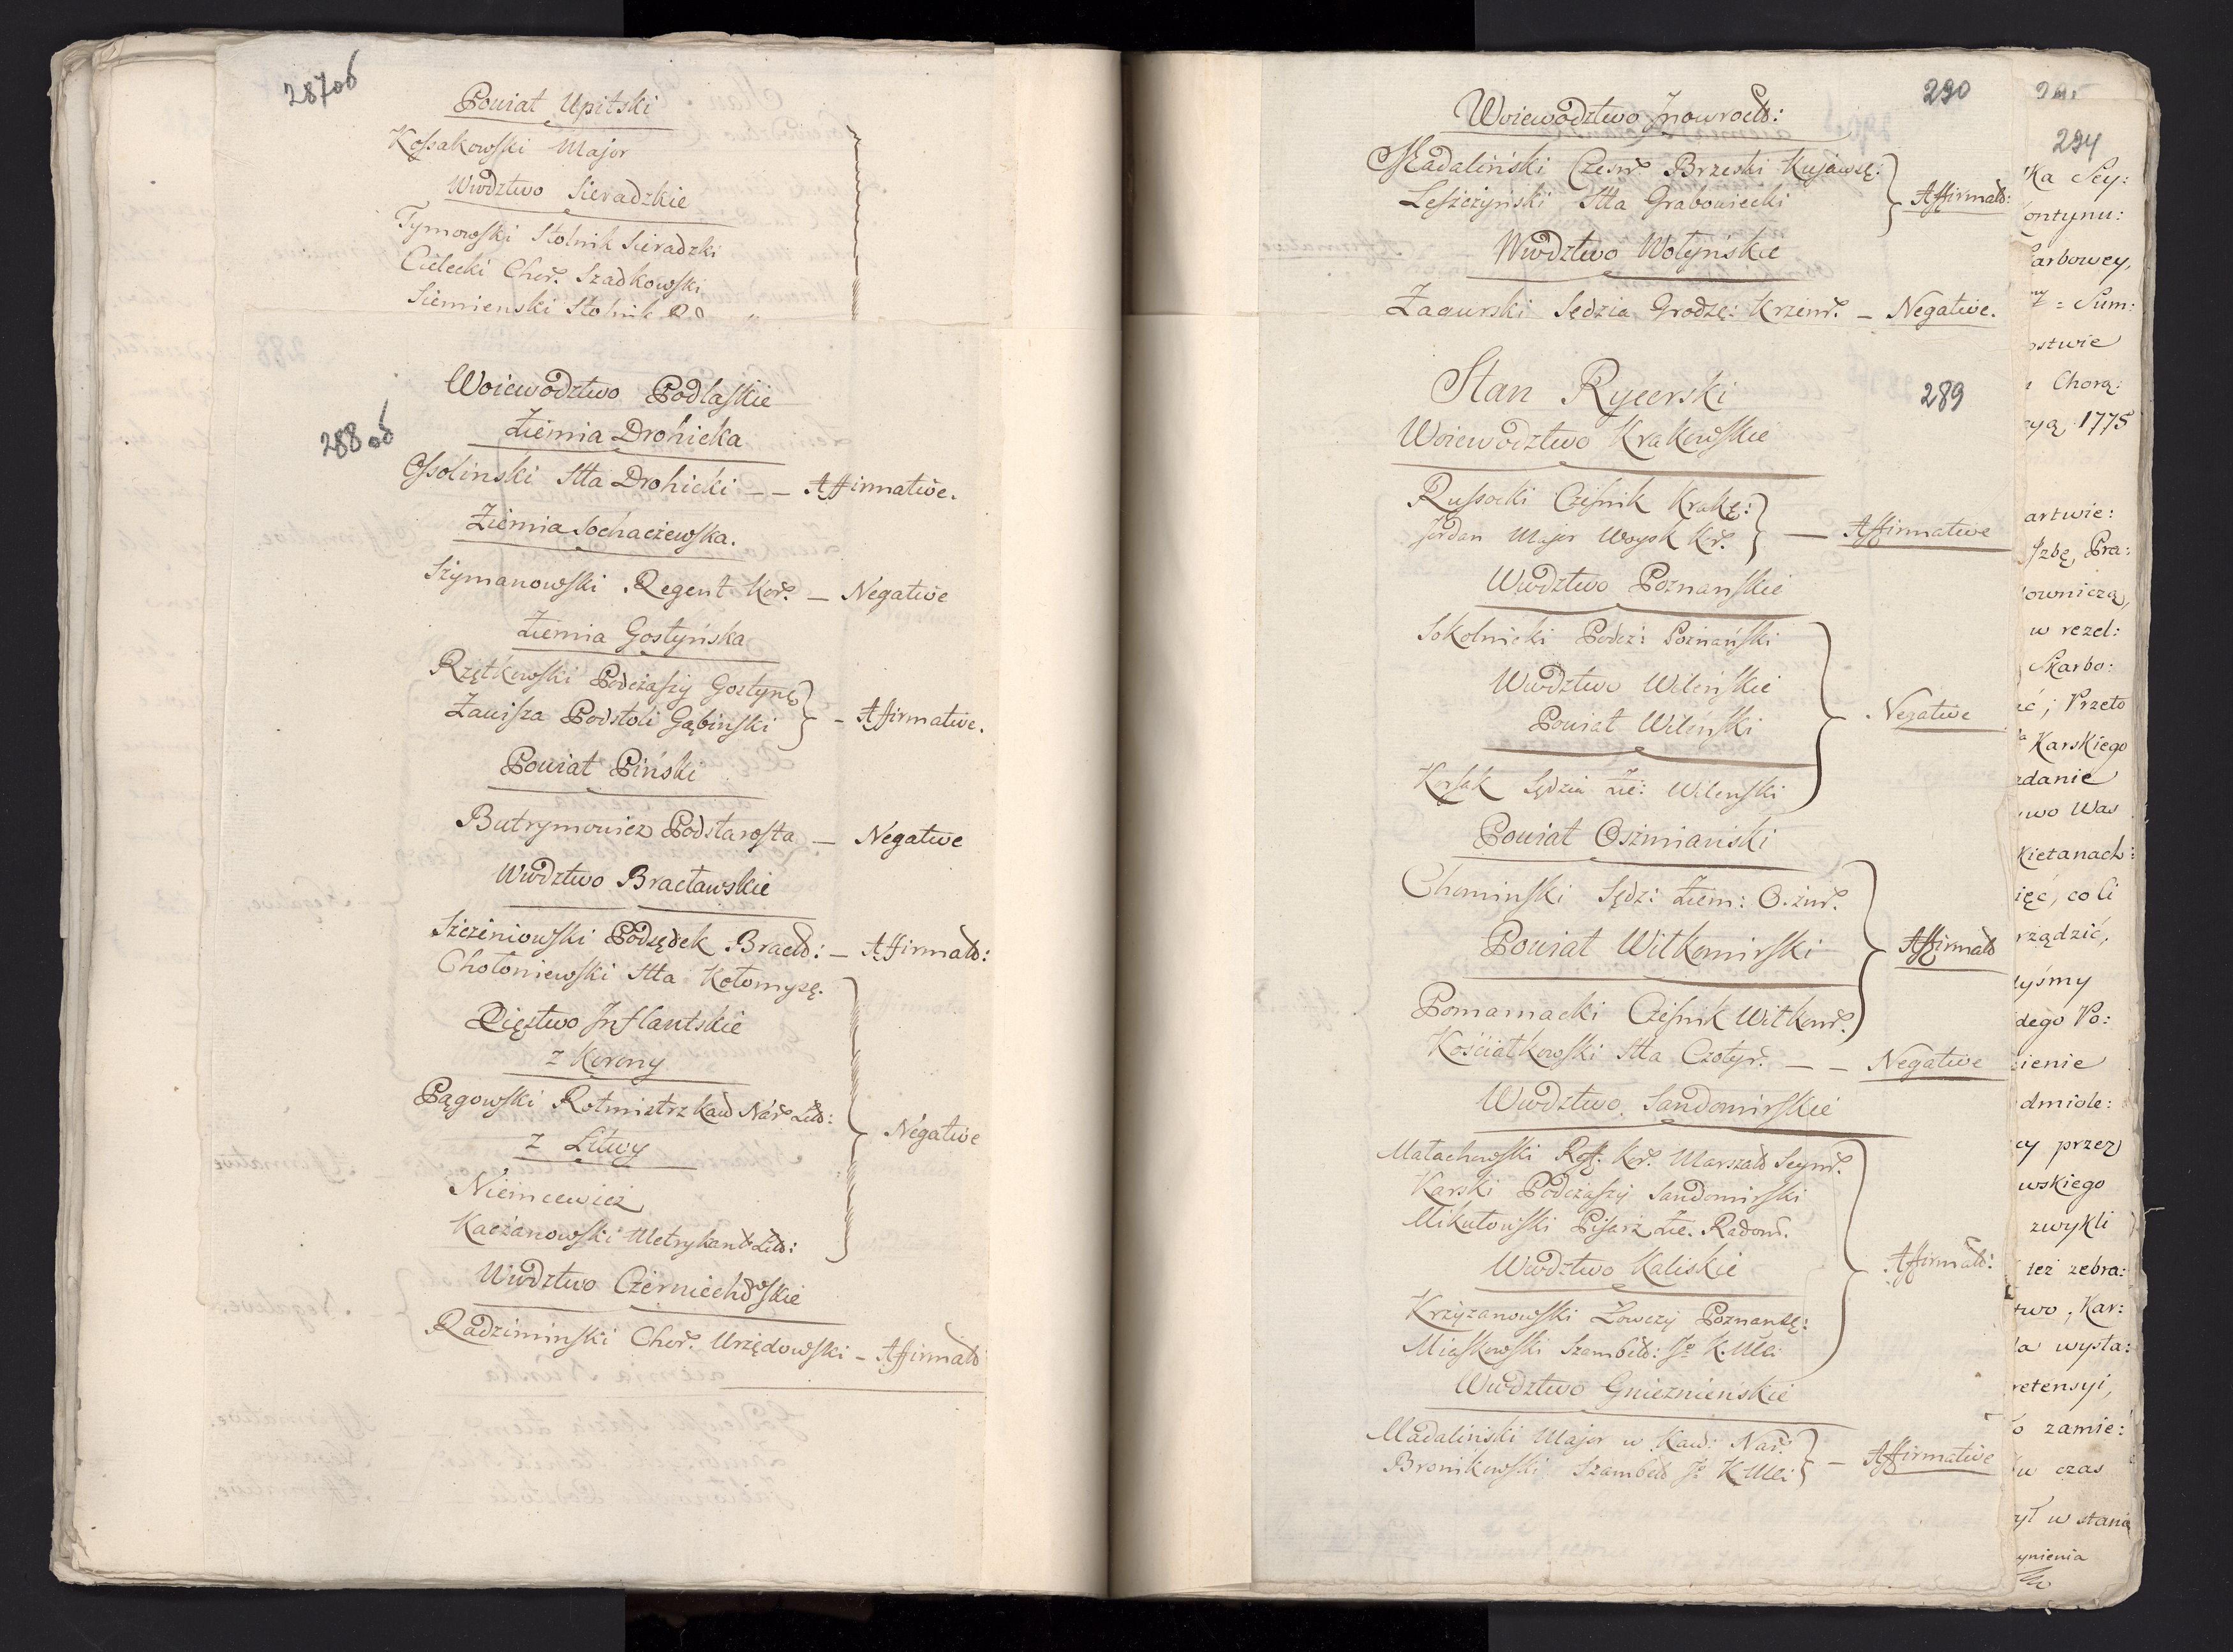 287 об
Powiat Upitski
Kossakowski Major
Wwdztwo Sieradzkie
Tymowski Stolnik Sieradzki
Cielecki Chor. Szadkowski
Siemienski Stolnik
Woiewodztwo Podlaskie
288 об
Ziemia Drohicka
Ossolinski Stta Drohicki – – Affirmative.
Ziemia Sochaczewska.
Szymanowski Regent Kor. – Negative
Ziemia Gostyńska
Rzętkowski Podczaszy Gostynę
Zawisza Podstoli Gąbinski – Affirmative.
Powiat Piński
Butrymowicz Podstarosta – Negative
Wwdztwo Bracławskie
Szczeniowski Podsędek Bracł: – Affirmat:
Chołoniewski Stta Kołomyę.
Xięztwo Inflantskie
z Korony
Pągowski Rotmistrz Kaw Nar. Lit:
z Litwy
Negative
Niemcewicz
Kaczanowski Metrykant Lit:
Wwdztwo Czerniechowskie
Radziminski Chor. Urzędowski – Affirmat
290
Woiewodztwo Inowrocł:
Madaliński Czesn. Brzeski Kujawsę:
Leszczyński Stta Grabowiecki
Affirmat:
Wwdztwo Wołyńskie
Zagurski Sędzia Grodzę: Krzem. – Negative.
Stan Rycerski
289
Woiewodztwo Krakowskie
Russocki Cześnik Krakę:
Jordan Major Woysk Kor. – Affirmative
Wwdztwo Poznańskie
Sokolnicki Podcz: Poznański
Wwdztwo Wileńskie
Powiat Wileński
Negative
Korsak Sędzia Zie: Wilenski
Powiat Oszmiański
Chominski Sędz: Ziem: Oszm.
Powiat Wiłkomirski
Affirmat
Pomarnacki Cześnik Wiłkom.
Kościałkowski Stta Czotyr. – – Negative
Wwdztwo Sandomirskie
Małachowski Ref. Kor. Marszał Seym.
Karski Podczaszy Sandomirski
Mikułowski Pisarz Zie. Radom.
Wwdztwo Kaliskie
Affirmat:
Krzyżanowski Łowczy Poznanę:
Miaskowski Szambel: Jo K. Mci
Wwdztwo Gnieznienskie
Madaliński Major w Kaw: Nar.
Bronikowski Szambel Jo K Mci – Affirmative
294
ka Sey:
ontynu:
arbowey,
= Sum:
ostwie
Chorą:
1775
artwie:
Izbę, Pra:
owniczą,
w rezol:
Skarbo:
ć; Przeto
Karskiego
zdanie
wo Was
kietanach:
ięć, co li
rządzić,
łyśmy
dego Po:
ienie
dmiole:
cy przez
wskiego
zwykli
też zebra:
two, Kar:
a wysta:
retensyi,
o zamie:
w czas
ył w stanie
ynienia